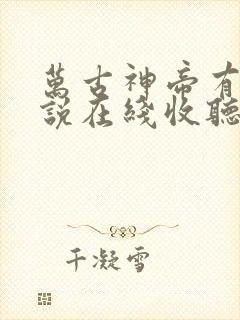 萬古神帝有
說在綫收聽
千凝雪